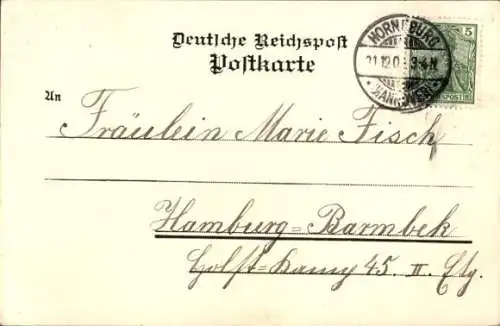 Deutsche Reichspost
Postkarte
HORNEBURG
21.12.0 3-4 N
* HANNOVER *
5
An
Fräulein Marie Fisch
Hamburg=Barmbek
Holst=Kamp 45. II. Etg.